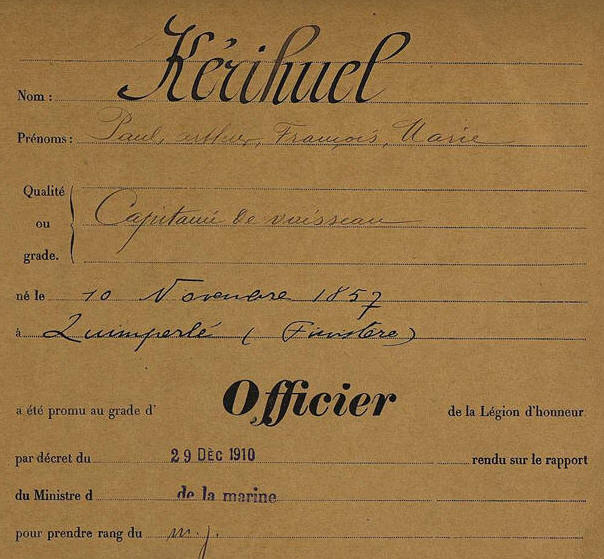 Nom : Kérihuel
Prénoms : Paul, arthur, François, Marie
Qualité
ou Capitaine de vaisseau
grade.
né le 10 Novembre 1857
à Quimperlé (Finistère)
a été promu au grade d' Officier de la Légion d'honneur
par décret du 29 DÉC 1910 rendu sur le rapport
du Ministre d de la marine
pour prendre rang du m. j.